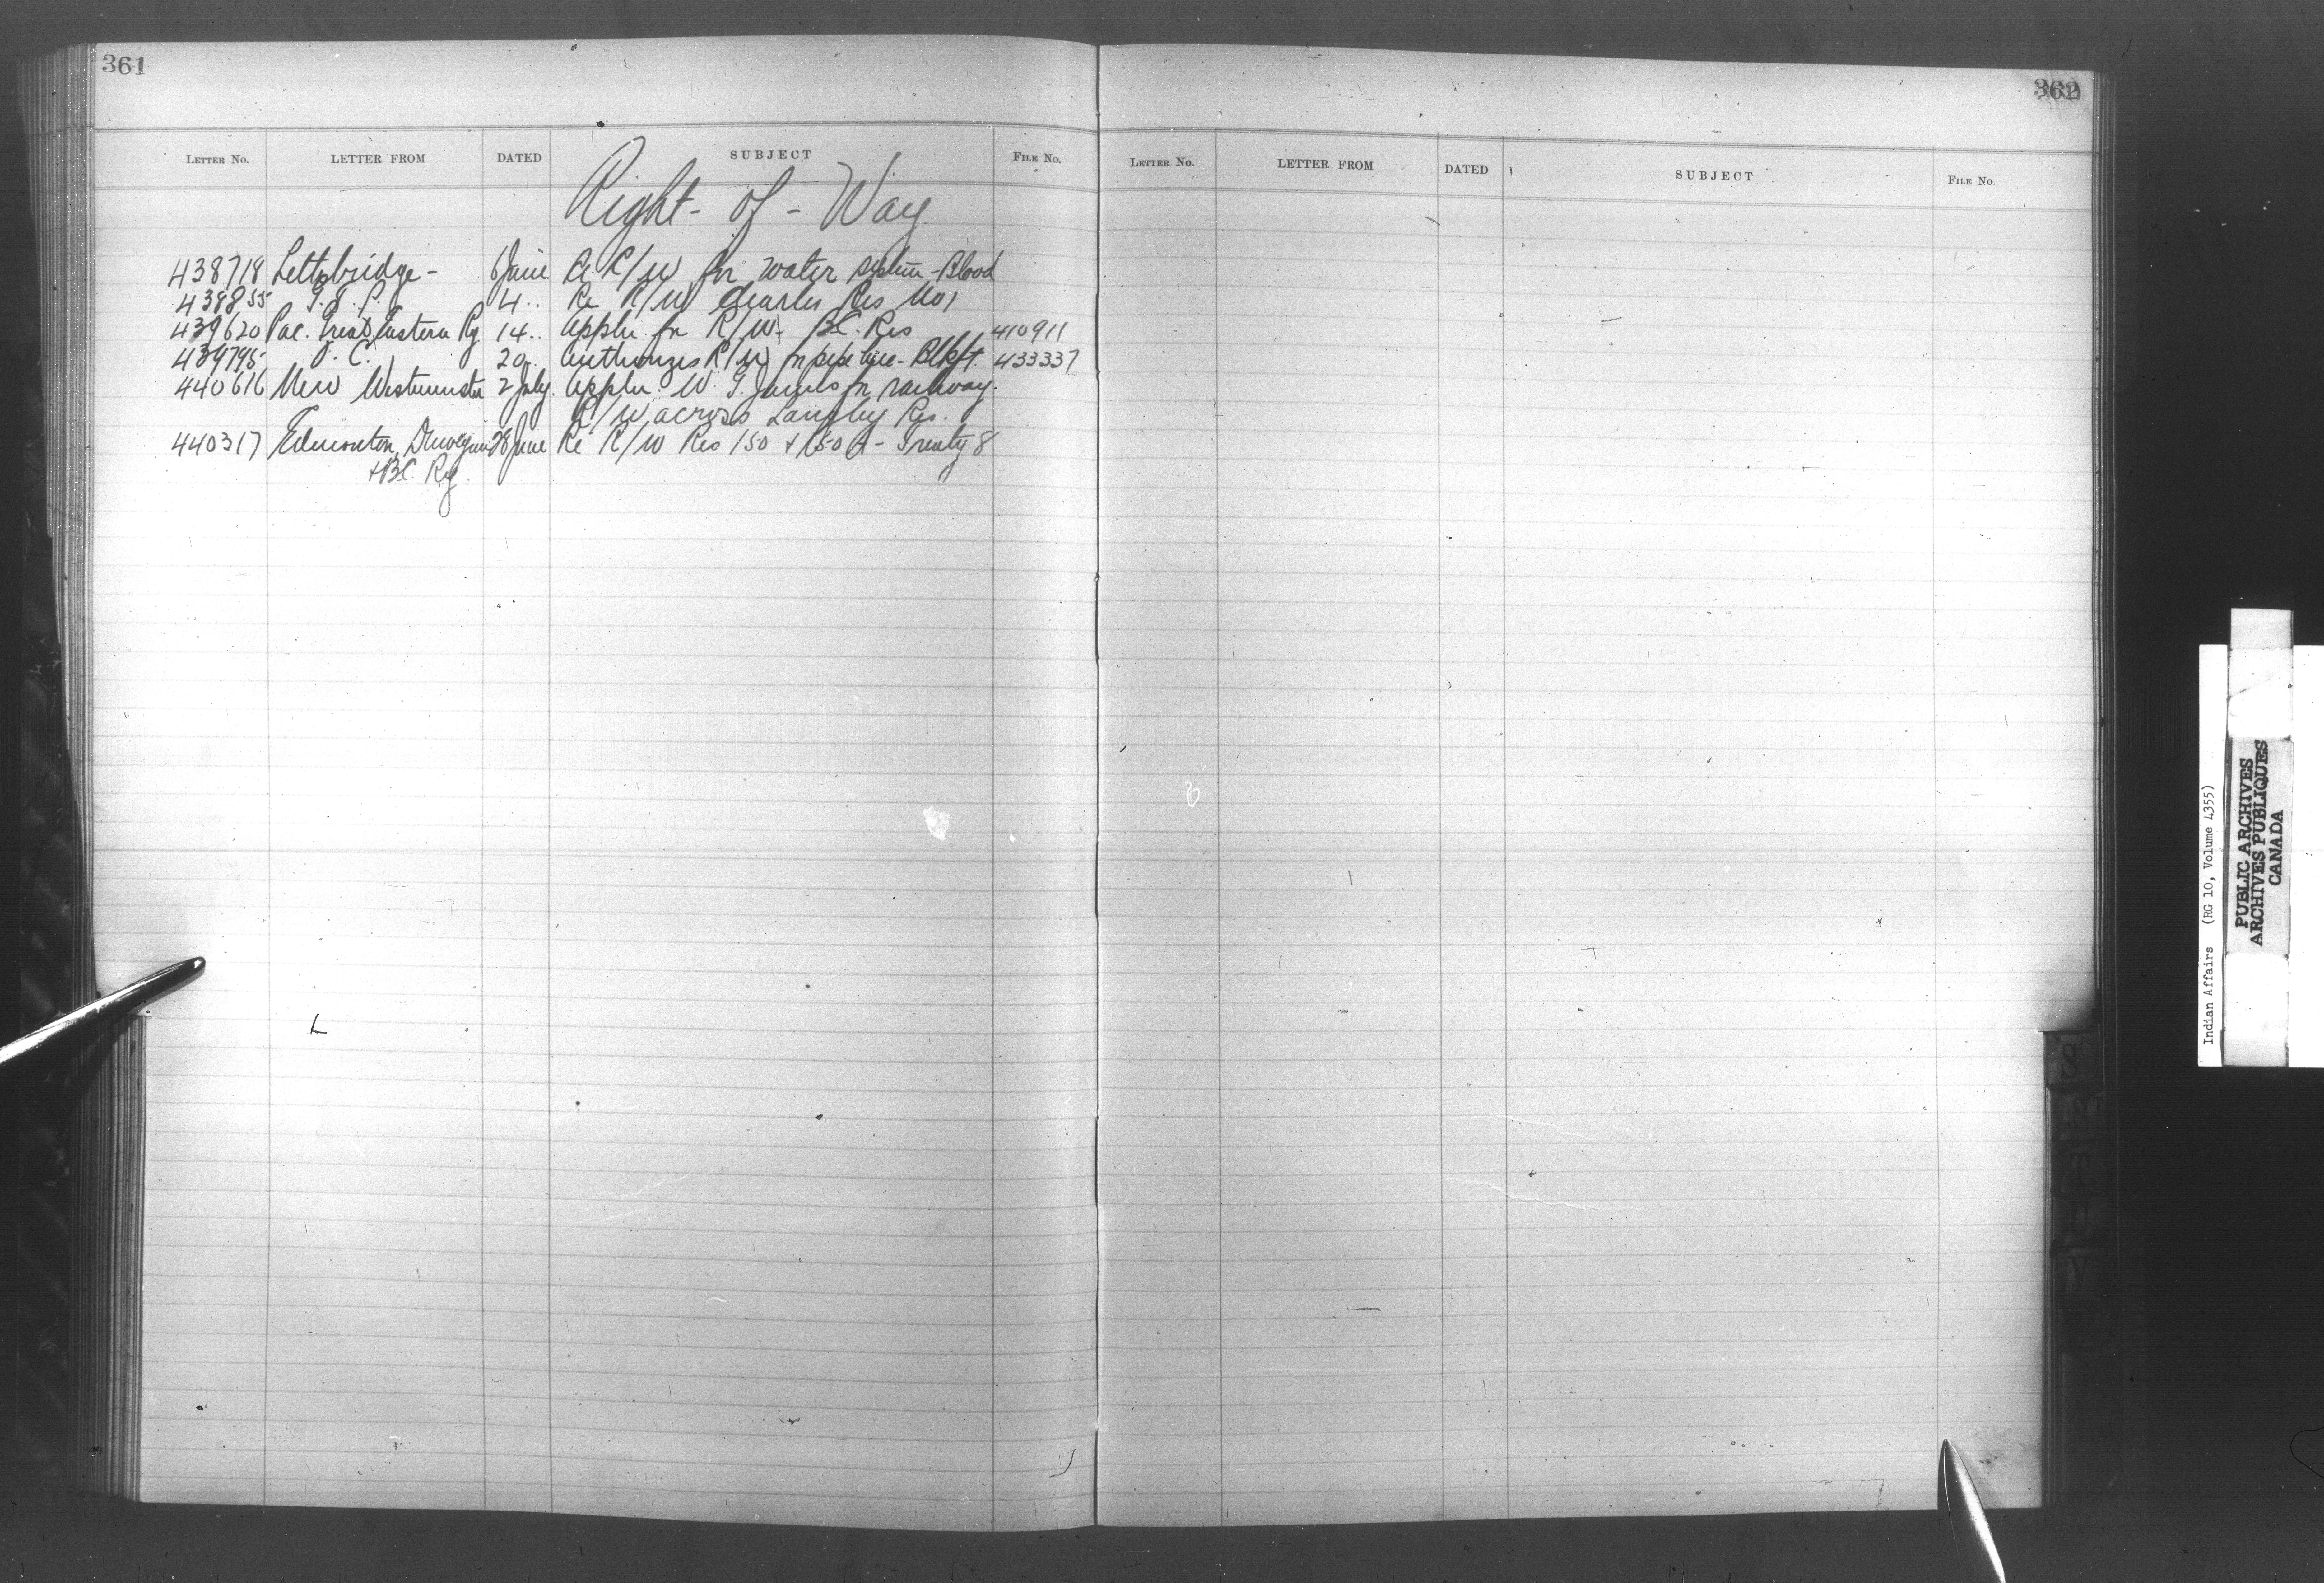 361
LETTER No. LETTER FROM DATED SUBJECT FILE No.
Right-of-Way
438718 Lethbridge - June Re R/W for water system - Blood
438855 G.T.P. 4 .. Re R/W Charles Res No 1
439620 Pac. Great Eastern Ry 14 .. Appln for R/W - B.C. Res 410911
439795 P.C. 20 .. Authorizes R/W for pipe line - Blkft. 433337
440616 New Westminster 2 July. Appln. W. G. for railway.
R/W across Langley Res.
440317 Edmonton, Dunvegan 28 June Re R/W Res 150 + 150 A - Treaty 8
+ B.C. Ry.
362
LETTER No. LETTER FROM DATED SUBJECT FILE No.
S
S
T
U
V
Indian Affairs (RG 10, Volume 4355)
PUBLIC ARCHIVES
ARCHIVES PUBLIQUES
CANADA